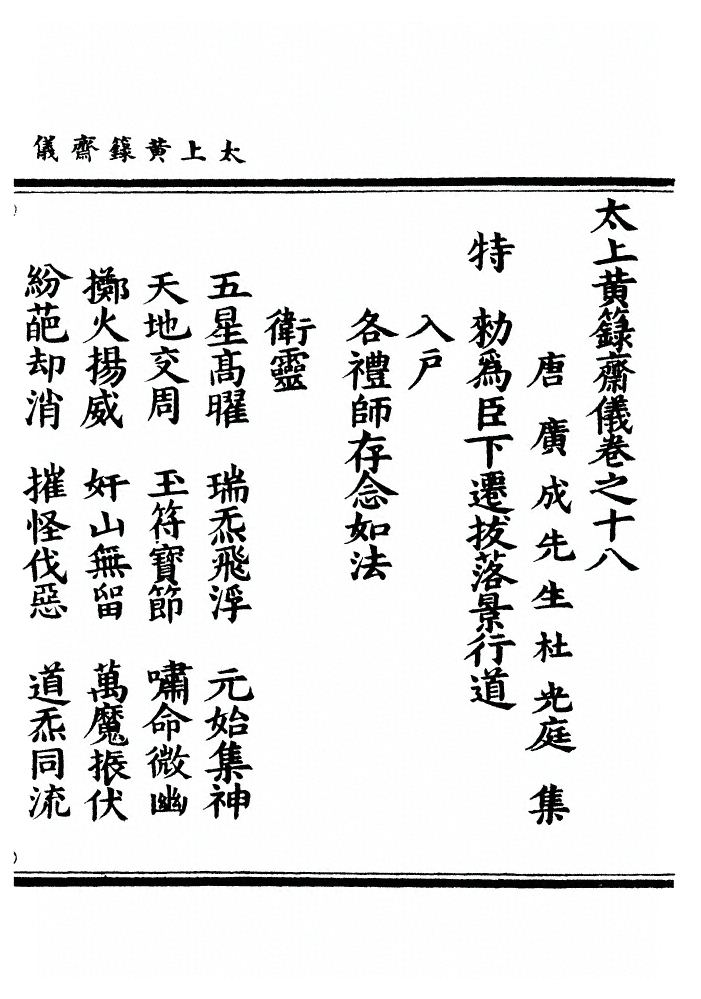 太上黄籙齋儀
太上黄籙齋儀卷之十八
唐廣成先生杜光庭集
特勑爲臣下遷拔落景行道
入戶
各禮師存念如法
衛靈
五星高曜 瑞炁飛浮 元始集神
天地交周 玉符寶節 嘯命微幽
擲火揚威 奸山無留 萬魔振伏
紛葩却消 摧怪伐惡 道炁同流